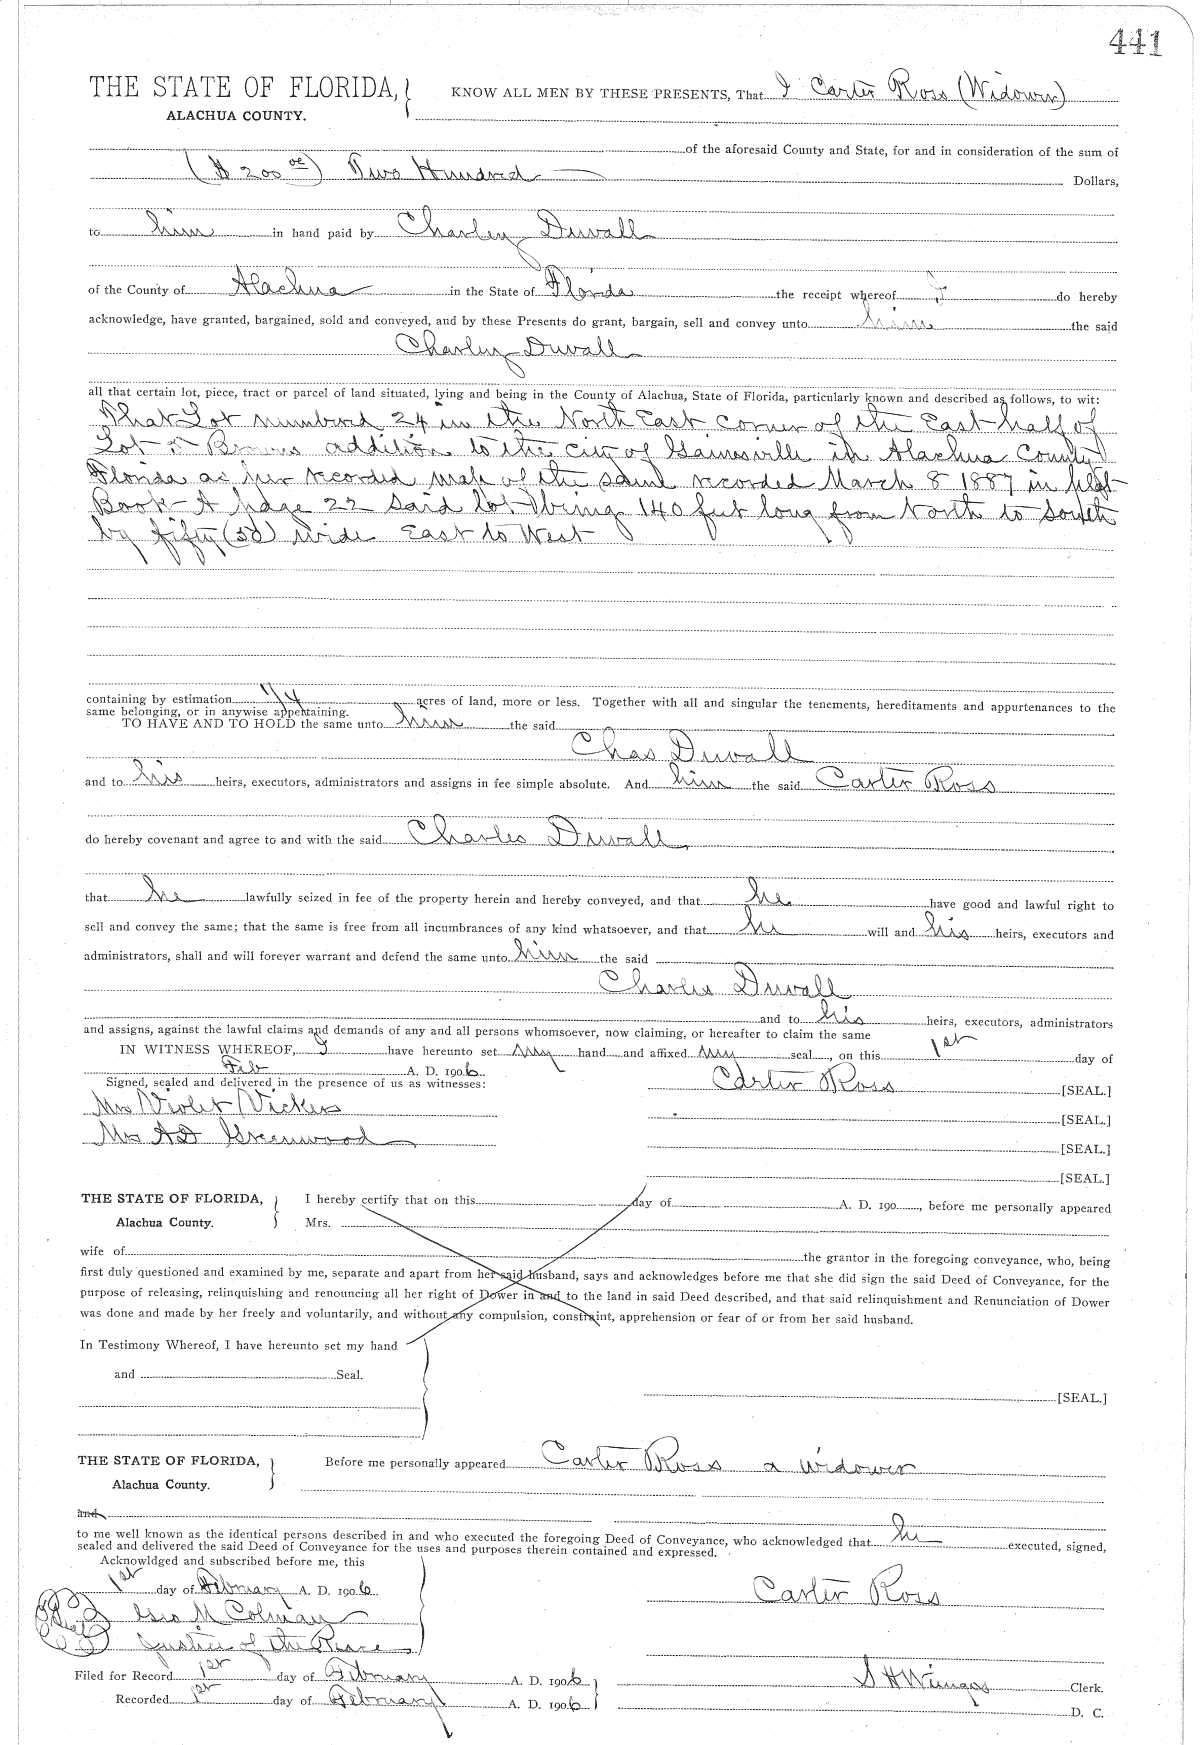 441
THE STATE OF FLORIDA,
ALACHUA COUNTY.
KNOW ALL MEN BY THESE PRESENTS, That I Carter Ross (Widower)
of the aforesaid County and State, for and in consideration of the sum of
($200 00) Two Hundred Dollars,
to him in hand paid by Charley Duvall
of the County of Alachua in the State of Florida the receipt whereof I do hereby
acknowledge, have granted, bargained, sold and conveyed, and by these Presents do grant, bargain, sell and convey unto him the said
Charley Duvall
all that certain lot, piece, tract or parcel of land situated, lying and being in the County of Alachua, State of Florida, particularly known and described as follows, to wit:
That Lot numbered 24 in the North East corner of the East half of
Lot 5 Browns addition to the City of Gainesville in Alachua County
Florida as per recorded map of the same recorded March 8 1887 in plat
Book A page 22 said lot being 140 feet long from North to South
by fifty (50) wide East to West
containing by estimation 1/4 acres of land, more or less. Together with all and singular the tenements, hereditaments and appurtenances to the
same belonging, or in anywise appertaining.
TO HAVE AND TO HOLD the same unto him the said
Chas Duvall
and to his heirs, executors, administrators and assigns in fee simple absolute. And him the said Carter Ross
do hereby covenant and agree to and with the said Charles Duvall
that he lawfully seized in fee of the property herein and hereby conveyed, and that he have good and lawful right to
sell and convey the same; that the same is free from all incumbrances of any kind whatsoever, and that he will and his heirs, executors and
administrators, shall and will forever warrant and defend the same unto him the said
Charles Duvall
and to his heirs, executors, administrators
and assigns, against the lawful claims and demands of any and all persons whomsoever, now claiming, or hereafter to claim the same
IN WITNESS WHEREOF, I have hereunto set my hand and affixed my seal, on this 1st day of
Feb A. D. 1906
Signed, sealed and delivered in the presence of us as witnesses:
Carter Ross [SEAL.]
Mrs Violet Vickers
[SEAL.]
Mrs A D Greenwood
[SEAL.]
[SEAL.]
THE STATE OF FLORIDA,
Alachua County.
I hereby certify that on this day of A. D. 190, before me personally appeared
Mrs.
wife of the grantor in the foregoing conveyance, who, being
first duly questioned and examined by me, separate and apart from her said husband, says and acknowledges before me that she did sign the said Deed of Conveyance, for the
purpose of releasing, relinquishing and renouncing all her right of Dower in and to the land in said Deed described, and that said relinquishment and Renunciation of Dower
was done and made by her freely and voluntarily, and without any compulsion, constraint, apprehension or fear of or from her said husband.
In Testimony Whereof, I have hereunto set my hand
and Seal.
[SEAL.]
THE STATE OF FLORIDA,
Alachua County.
Before me personally appeared Carter Ross a widower
and
to me well known as the identical persons described in and who executed the foregoing Deed of Conveyance, who acknowledged that he executed, signed,
sealed and delivered the said Deed of Conveyance for the uses and purposes therein contained and expressed.
Acknowldged and subscribed before me, this
1st day of February A. D. 1906
Carter Ross
Seal
Geo M Colman
Justice of the Peace
Filed for Record 1st day of February A. D. 1906
S H Wienges Clerk.
Recorded 1st day of February A. D. 1906
D. C.